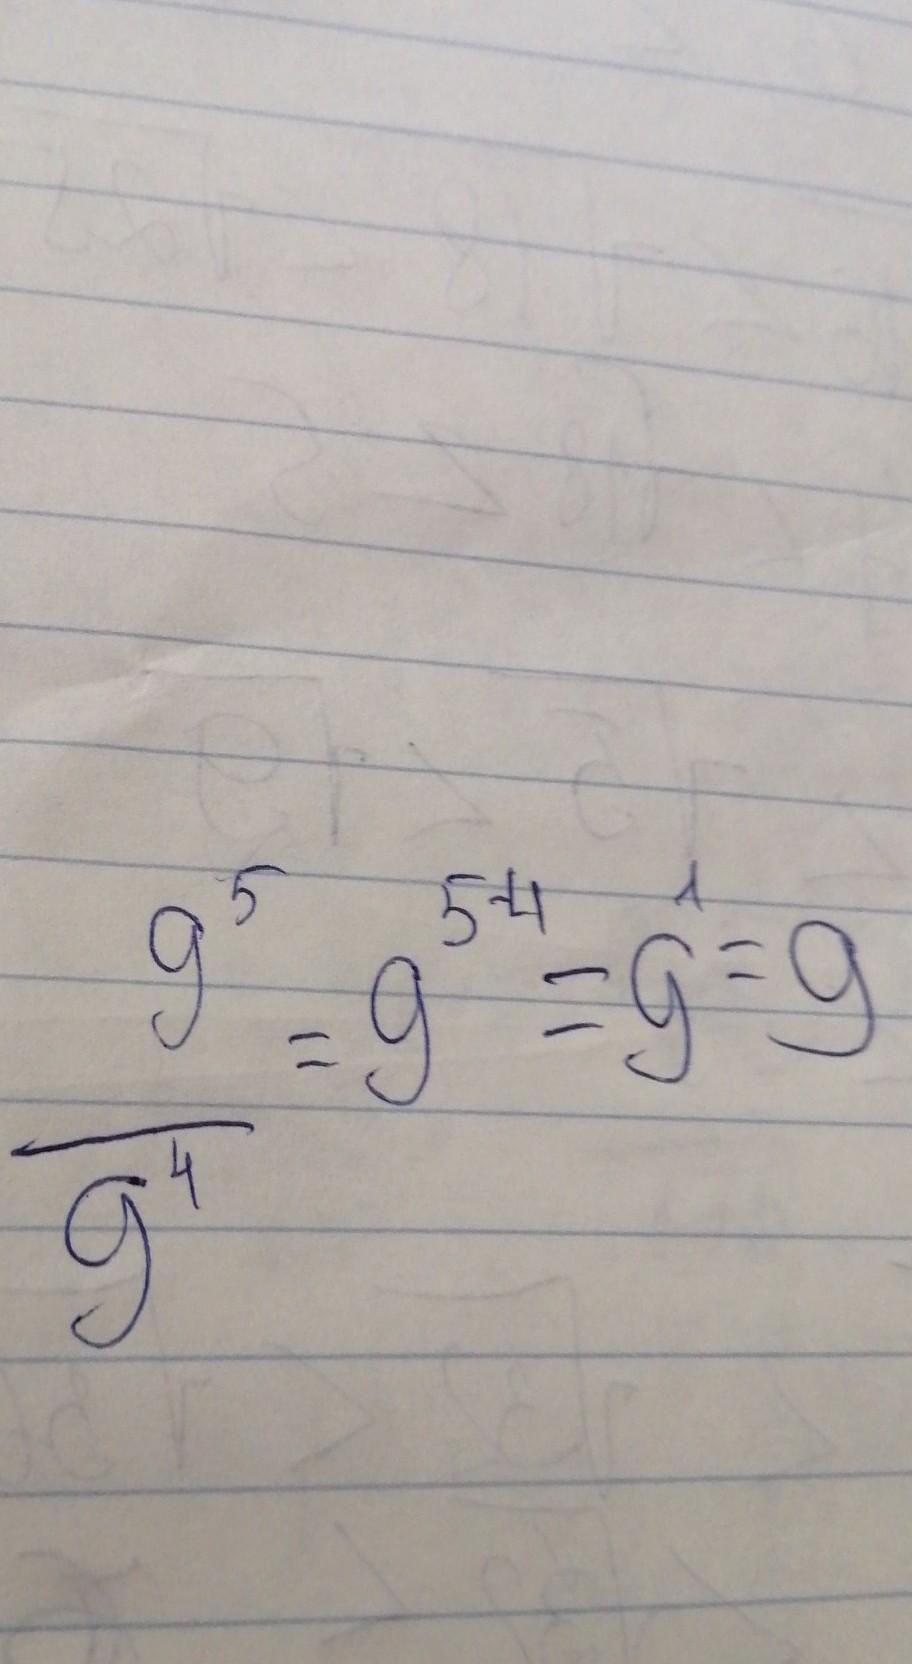 9^5/9^4 = 9^(5-4) = 9^1 = 9